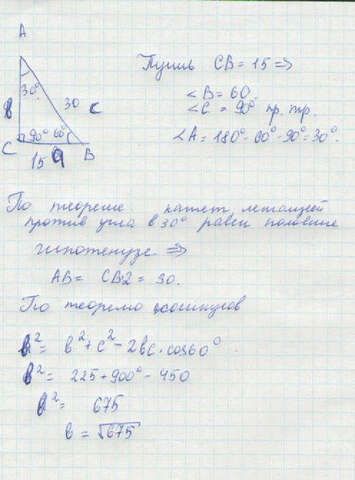 A
30°
в
30
с
C
90°
60°
B
15
a
Пусть CB = 15 =>
∠B = 60.
∠C = 90° пр. тр.
∠A = 180° - 60° - 90° = 30°.
По теореме катет лежащей
против угла в 30° равен половине
гипотенузе =>
AB = CB2 = 30.
По теореме косинусов
в² = в² + с² - 2вс · cos60°
в² = 225 + 900° - 450
в² = 675
в = √675